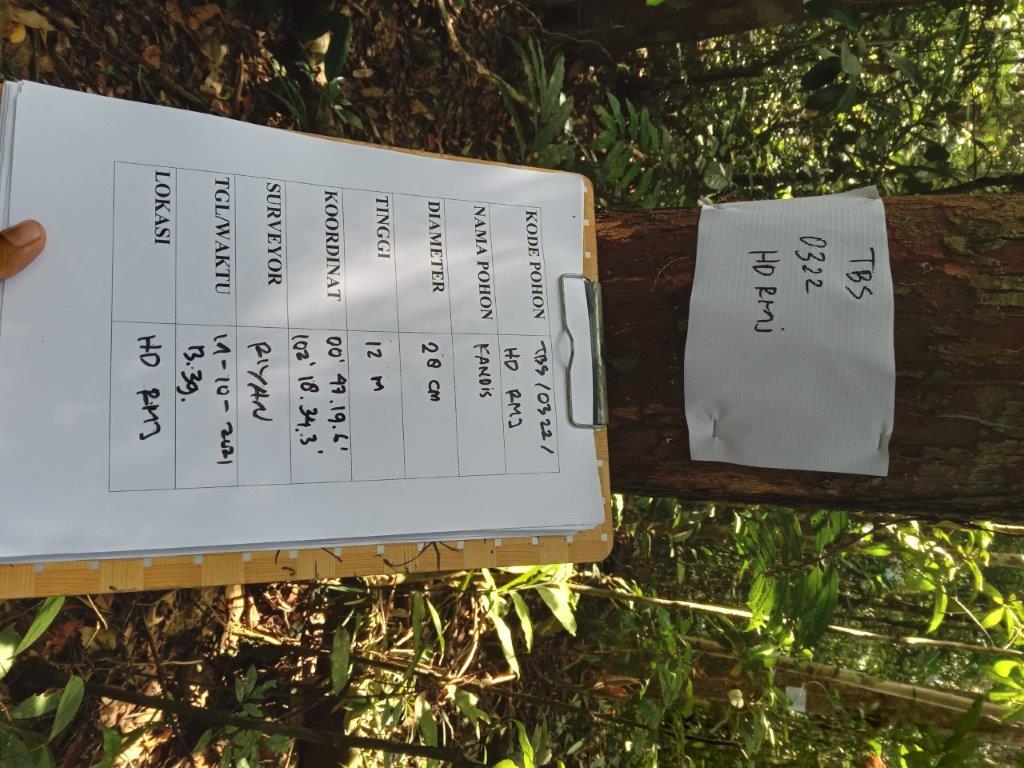 KODE POHON TBS / 0322 /
HD RMJ
NAMA POHON KANDIS
DIAMETER 28 cm
TINGGI 12 m
KOORDINAT 00' 47. 19. 6'
102' 18. 34,3'
SURVEYOR RIYAN
TGL/WAKTU 14 - 10 - 2021
13.39.
LOKASI HD RMJ
TBS
0322
HD RMJ